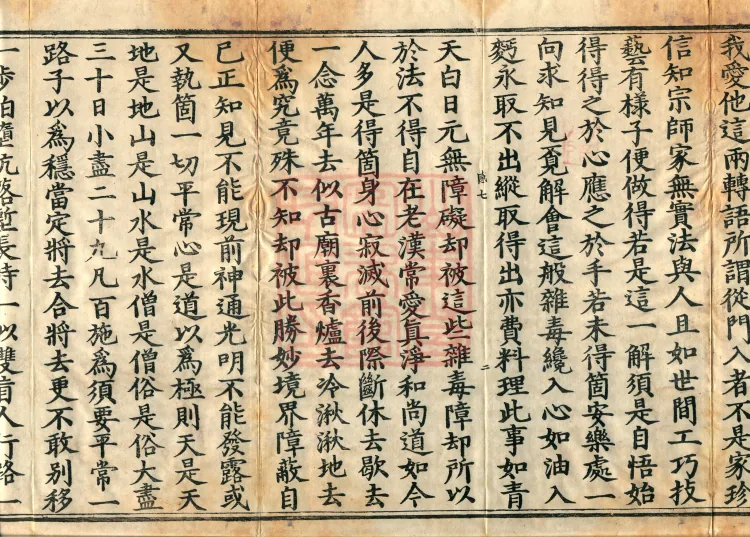 我愛他這兩轉語所謂從門入者不是家珍
信知宗師家無實法與人且如世間工巧技
藝有樣子便做得若是這一解須是自悟始
得得之於心應之於手若未得箇安樂處一
向求知見覓解會這般雜毒纔入心如油入
麪永取不出縱取得出亦費料理此事如青
天白日元無障礙却被這些雜毒障却所以
於法不得自在老漢常愛真淨和尚道如今
人多是得箇身心寂滅前後際斷休去歇去
一念萬年去似古廟裏香爐去冷湫湫地去
便爲究竟殊不知却被此勝妙境界障蔽自
已正知見不能現前神通光明不能發露或
又執箇一切平常心是道以爲極則天是天
地是地山是山水是水僧是僧俗是俗大盡
三十日小盡二十九凡百施爲須要平常一
路子以爲穩當定將去合將去更不敢別移
一步怕墮坑落塹長時一以雙盲人行路一